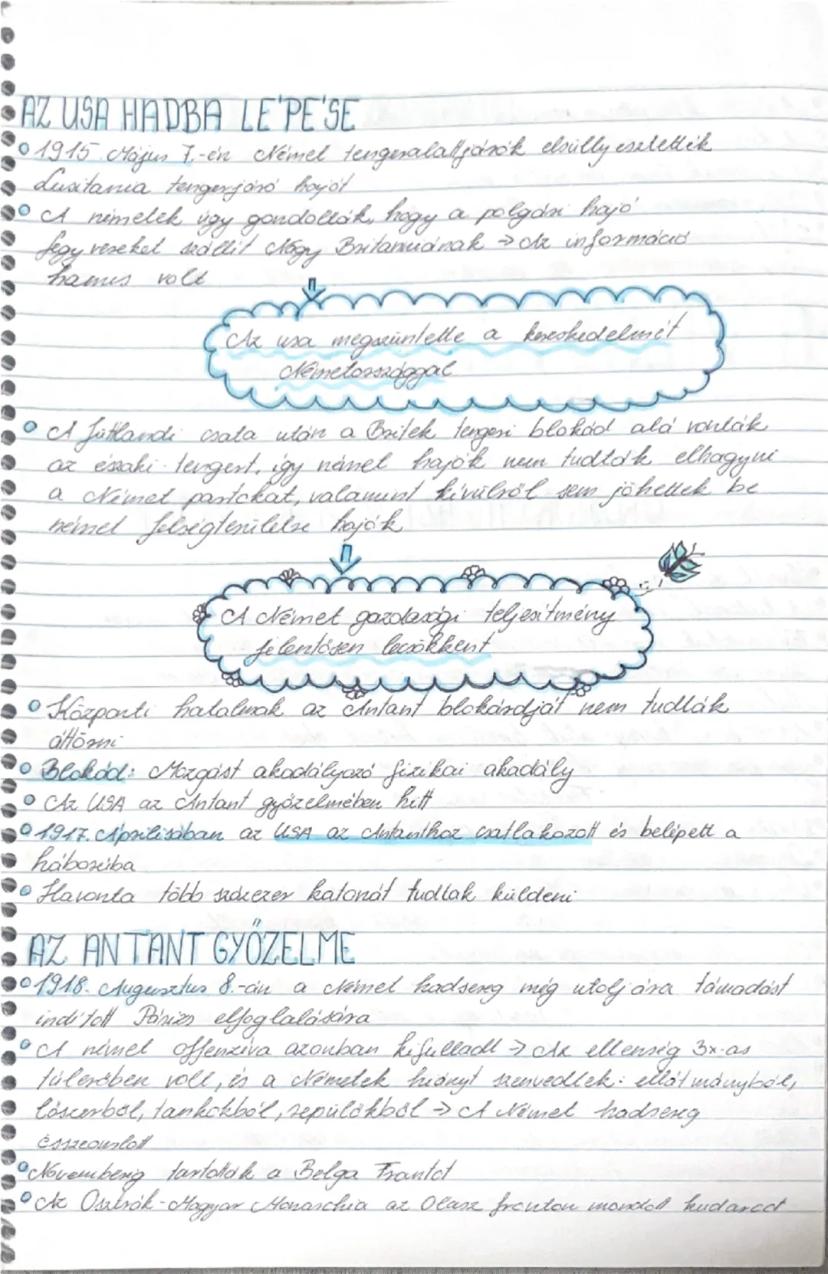 AZ USA HADBA LÉPÉSE
1915 Május 7.-én Német tengeralattjárók elsüllyesztették
Lusitania tengerjáró hajót
A németek úgy gondolták, hogy a polgári hajó
fegyvereket szállít Nagy Britanniának → Az információ
hamis volt
Az usa megszüntette a kereskedelmét
Németországgal
A Jütlandi csata után a Britek tengeri blokád alá vonták
az északi tengert, így német hajók nem tudták elhagyni
a Német partokat, valamint kívülről sem jöhettek be
német felségterületre hajók
A Német gazdasági teljesítmény
jelentősen lecsökkent
Központi hatalmak az Antant blokádját nem tudták
áttörni
Blokád: Mozgást akadályozó fizikai akadály
Az USA az Antant győzelmében hitt
1917. Áprilisában az USA az Antanthoz csatlakozott és belépett a
háborúba
Havonta több százezer katonát tudtak küldeni
AZ ANTANT GYŐZELME
1918. Augusztus 8.-án a Német hadsereg még utoljára támadást
indított Párizs elfoglalására
A német offenzíva azonban kifulladt → Az ellenség 3x-as
túlerőben volt, és a Németek hiányt szenvedtek: ellátmányból,
lőszerből, tankokból, repülőkből → A Német hadsereg
összeomlott
Novemberig tartották a Belga Frontot
Az Osztrák-Magyar Monarchia az Olasz fronton mondott kudarcot